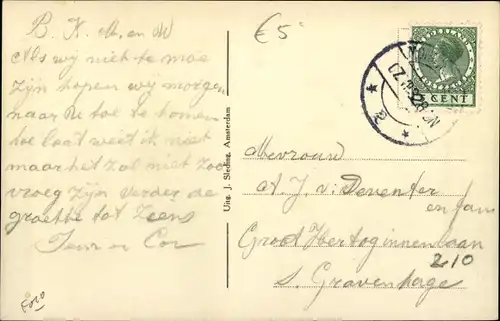 B. K. M. en W
Als wij niet te moe
zijn hopen wij morgen
naar U toe te komen
hoe laat weet ik niet
maar het zal niet zoo
vroeg zijn verder de
groeten tot ziens
en Cor
Foto
Uitg. J. Sleding, Amsterdam
€5
CENT
Mevrouw
A. J. v. Deventer
en fam
Groot Hertoginnenlaan
210
s. Gravenhage